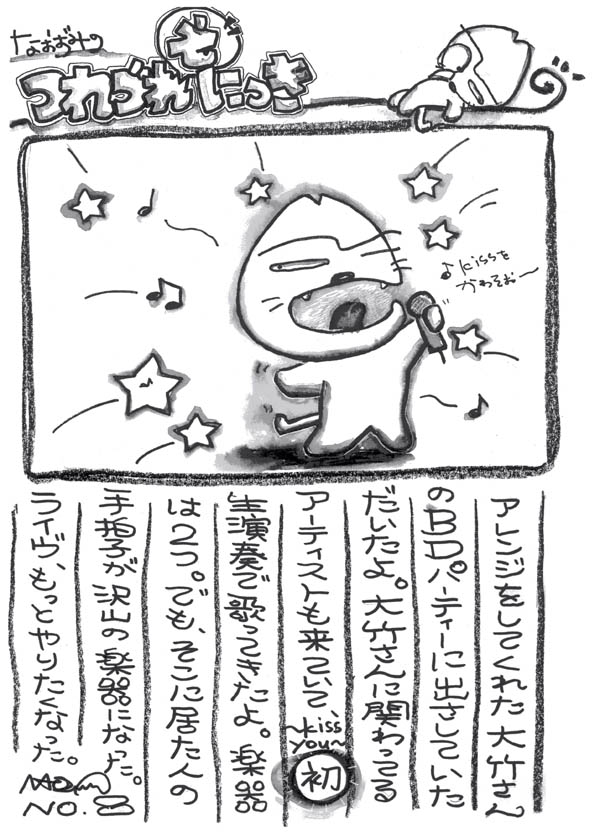 なおおみの
つれづれえにっき
♪kissを
かわそお〜
アレンジをしてくれた大竹さん
のBDパーティーに出させていた
だいたよ。大竹さんに関わってる
アーティストも来ていて、
〜kiss
you〜
初
生演奏で歌ってきたよ。楽器
は2つ。でも、そこに居た人の
手拍子が沢山の楽器になった。
ライヴ、もっとやりたくなった。
NO.